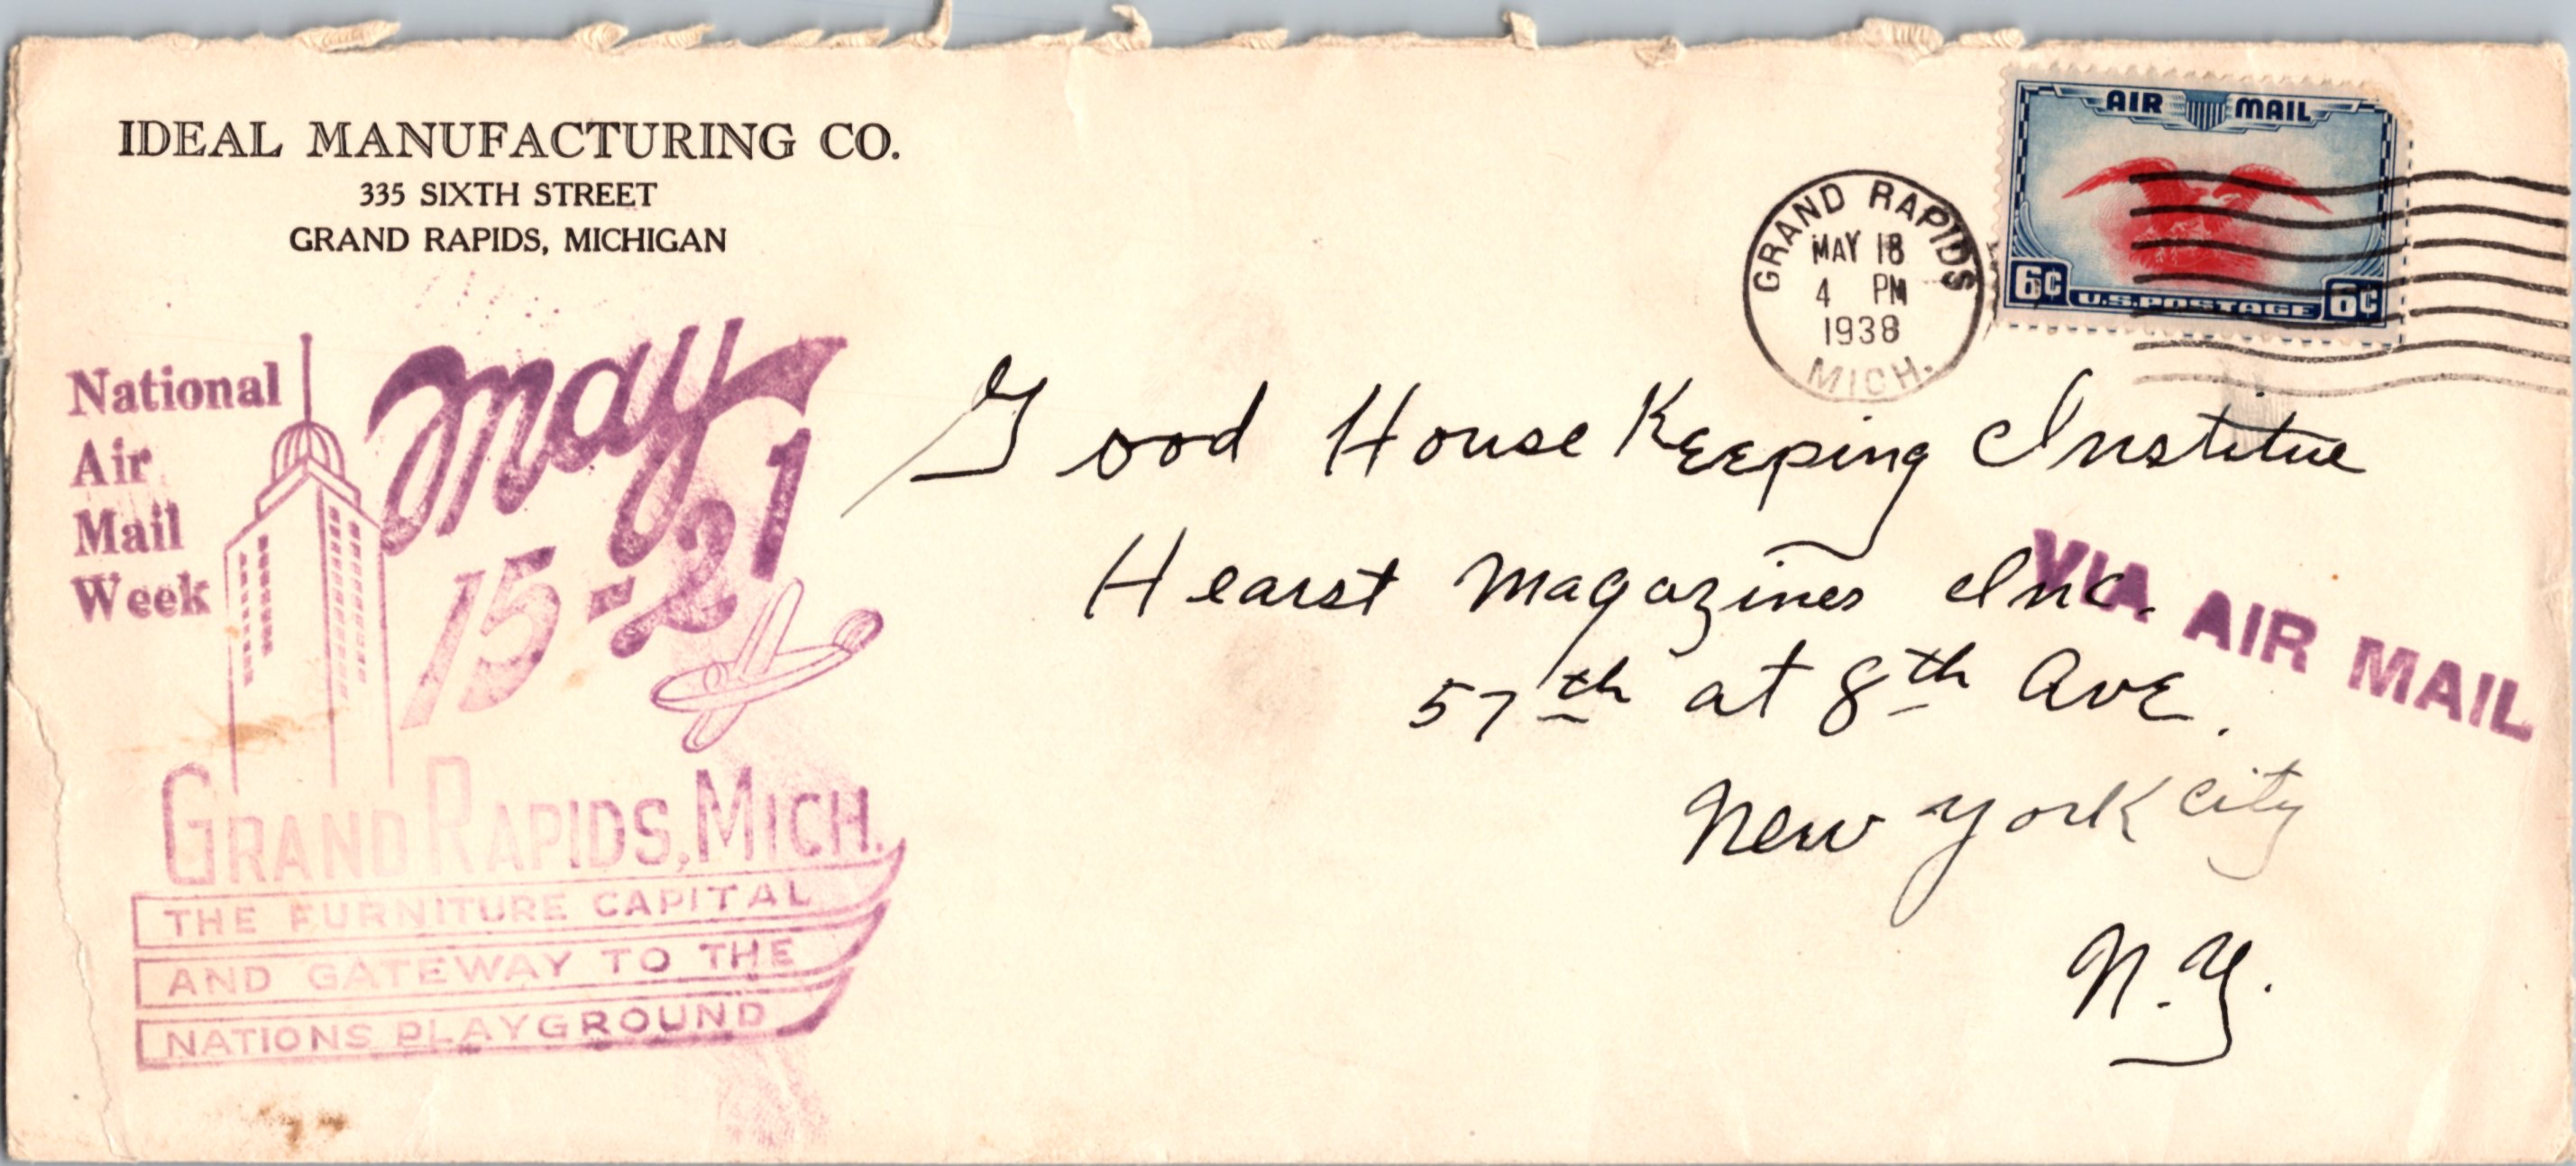 IDEAL MANUFACTURING CO.
335 SIXTH STREET
GRAND RAPIDS, MICHIGAN
National
Air
Mail
Week
May
15-21
GRAND RAPIDS, MICH.
THE FURNITURE CAPITAL
AND GATEWAY TO THE
NATIONS PLAYGROUND
GRAND RAPIDS
MAY 18
4 PM
1938
MICH.
AIR MAIL
6¢ U.S. POSTAGE 6¢
Good House Keeping Institue
Hearst Magazines Inc.
VIA AIR MAIL
57th at 8th Ave.
New York City
N.Y.